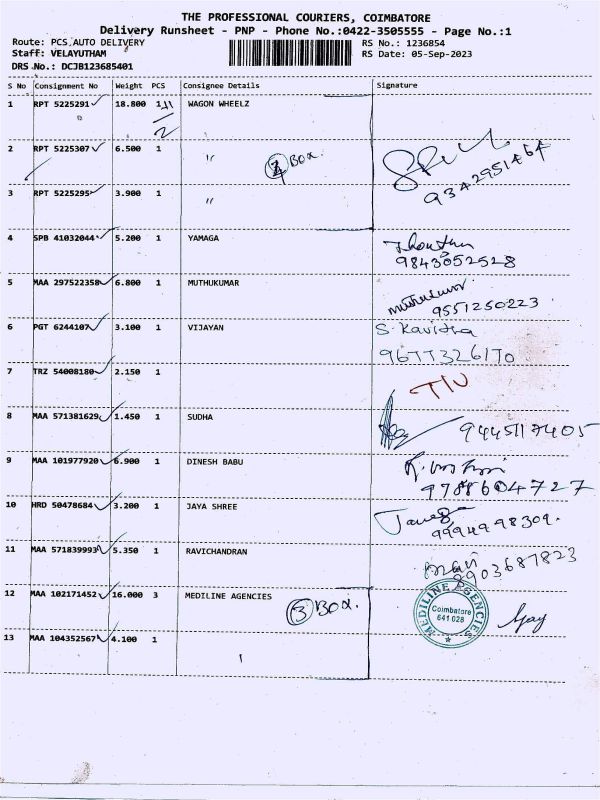 THE PROFESSIONAL COURIERS, COIMBATORE
Delivery Runsheet - PNP - Phone No.:0422-3505555 - Page No.:1
Route: PCS AUTO DELIVERY RS No.: 1236854
Staff: VELAYUTHAM RS Date: 05-Sep-2023
DRS No.: DCJB123685401
S No Consignment No Weight PCS Consignee Details Signature
1 RPT 5225291 18.800 WAGON WHEELZ
2 RPT 5225307 6.500 1 " Box.
9342951464
3 RPT 5225295 3.900 1 "
4 SPB 41032044 5.200 1 YAMAGA
9843052528
5 MAA 297522358 6.800 1 MUTHUKUMAR
9551250223
6 PGT 6244107 3.100 1 VIJAYAN S. Kavitha
9677326170
7 TRZ 54008180 2.150 1
8 MAA 571381629 1.450 1 SUDHA 9445117405
9 MAA 101977920 6.900 1 DINESH BABU
9788604727
10 HRD 50478684 3.200 1 JAYA SHREE
9994998309.
11 MAA 571839993 5.350 1 RAVICHANDRAN
8903687823
12 MAA 102171452 16.000 3 MEDILINE AGENCIES
3 Box.
MEDILINE AGENCIES
Coimbatore
641 028
Ajay
13 MAA 104352567 4.100 1